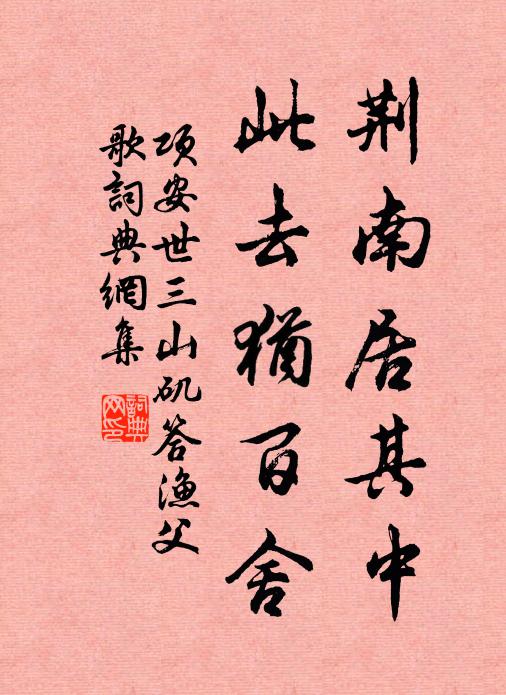 荆南居其中
此去猶百舍
项安世三山矶答渔父
歌詞典網集
詞典網印